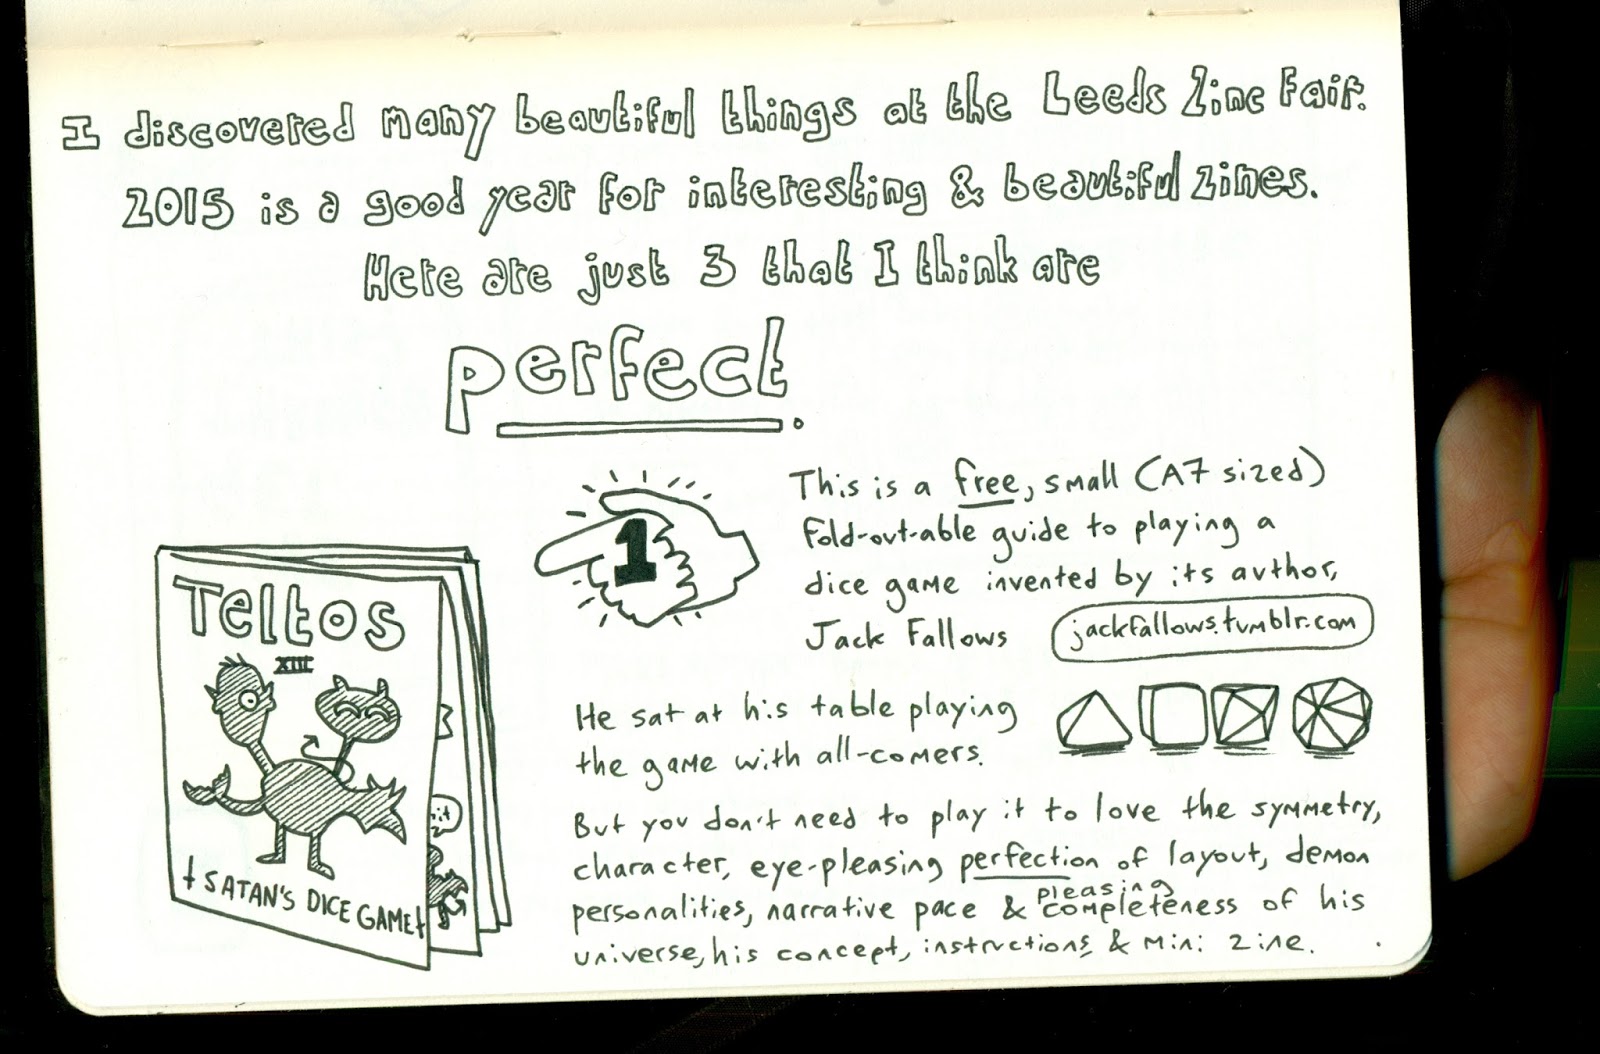 I discovered many beautiful things at the Leeds Zine Fair.
2015 is a good year for interesting & beautiful zines.
Here are just 3 that I think are
perfect.
1
This is a free, small (A7 sized)
fold-out-able guide to playing a
dice game invented by its author,
Jack Fallows
jackfallows.tumblr.com
Teltos
XIII
SATAN'S DICE GAME
He sat at his table playing
the game with all-comers.
But you don't need to play it to love the symmetry,
character, eye-pleasing perfection of layout, demon
personalities, narrative pace & pleasing completeness of his
universe, his concept, instructions & mini zine.